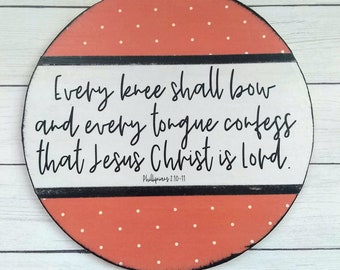 Every knee shall bow
and every tongue confess
that Jesus Christ is Lord.
Philippians 2:10-11